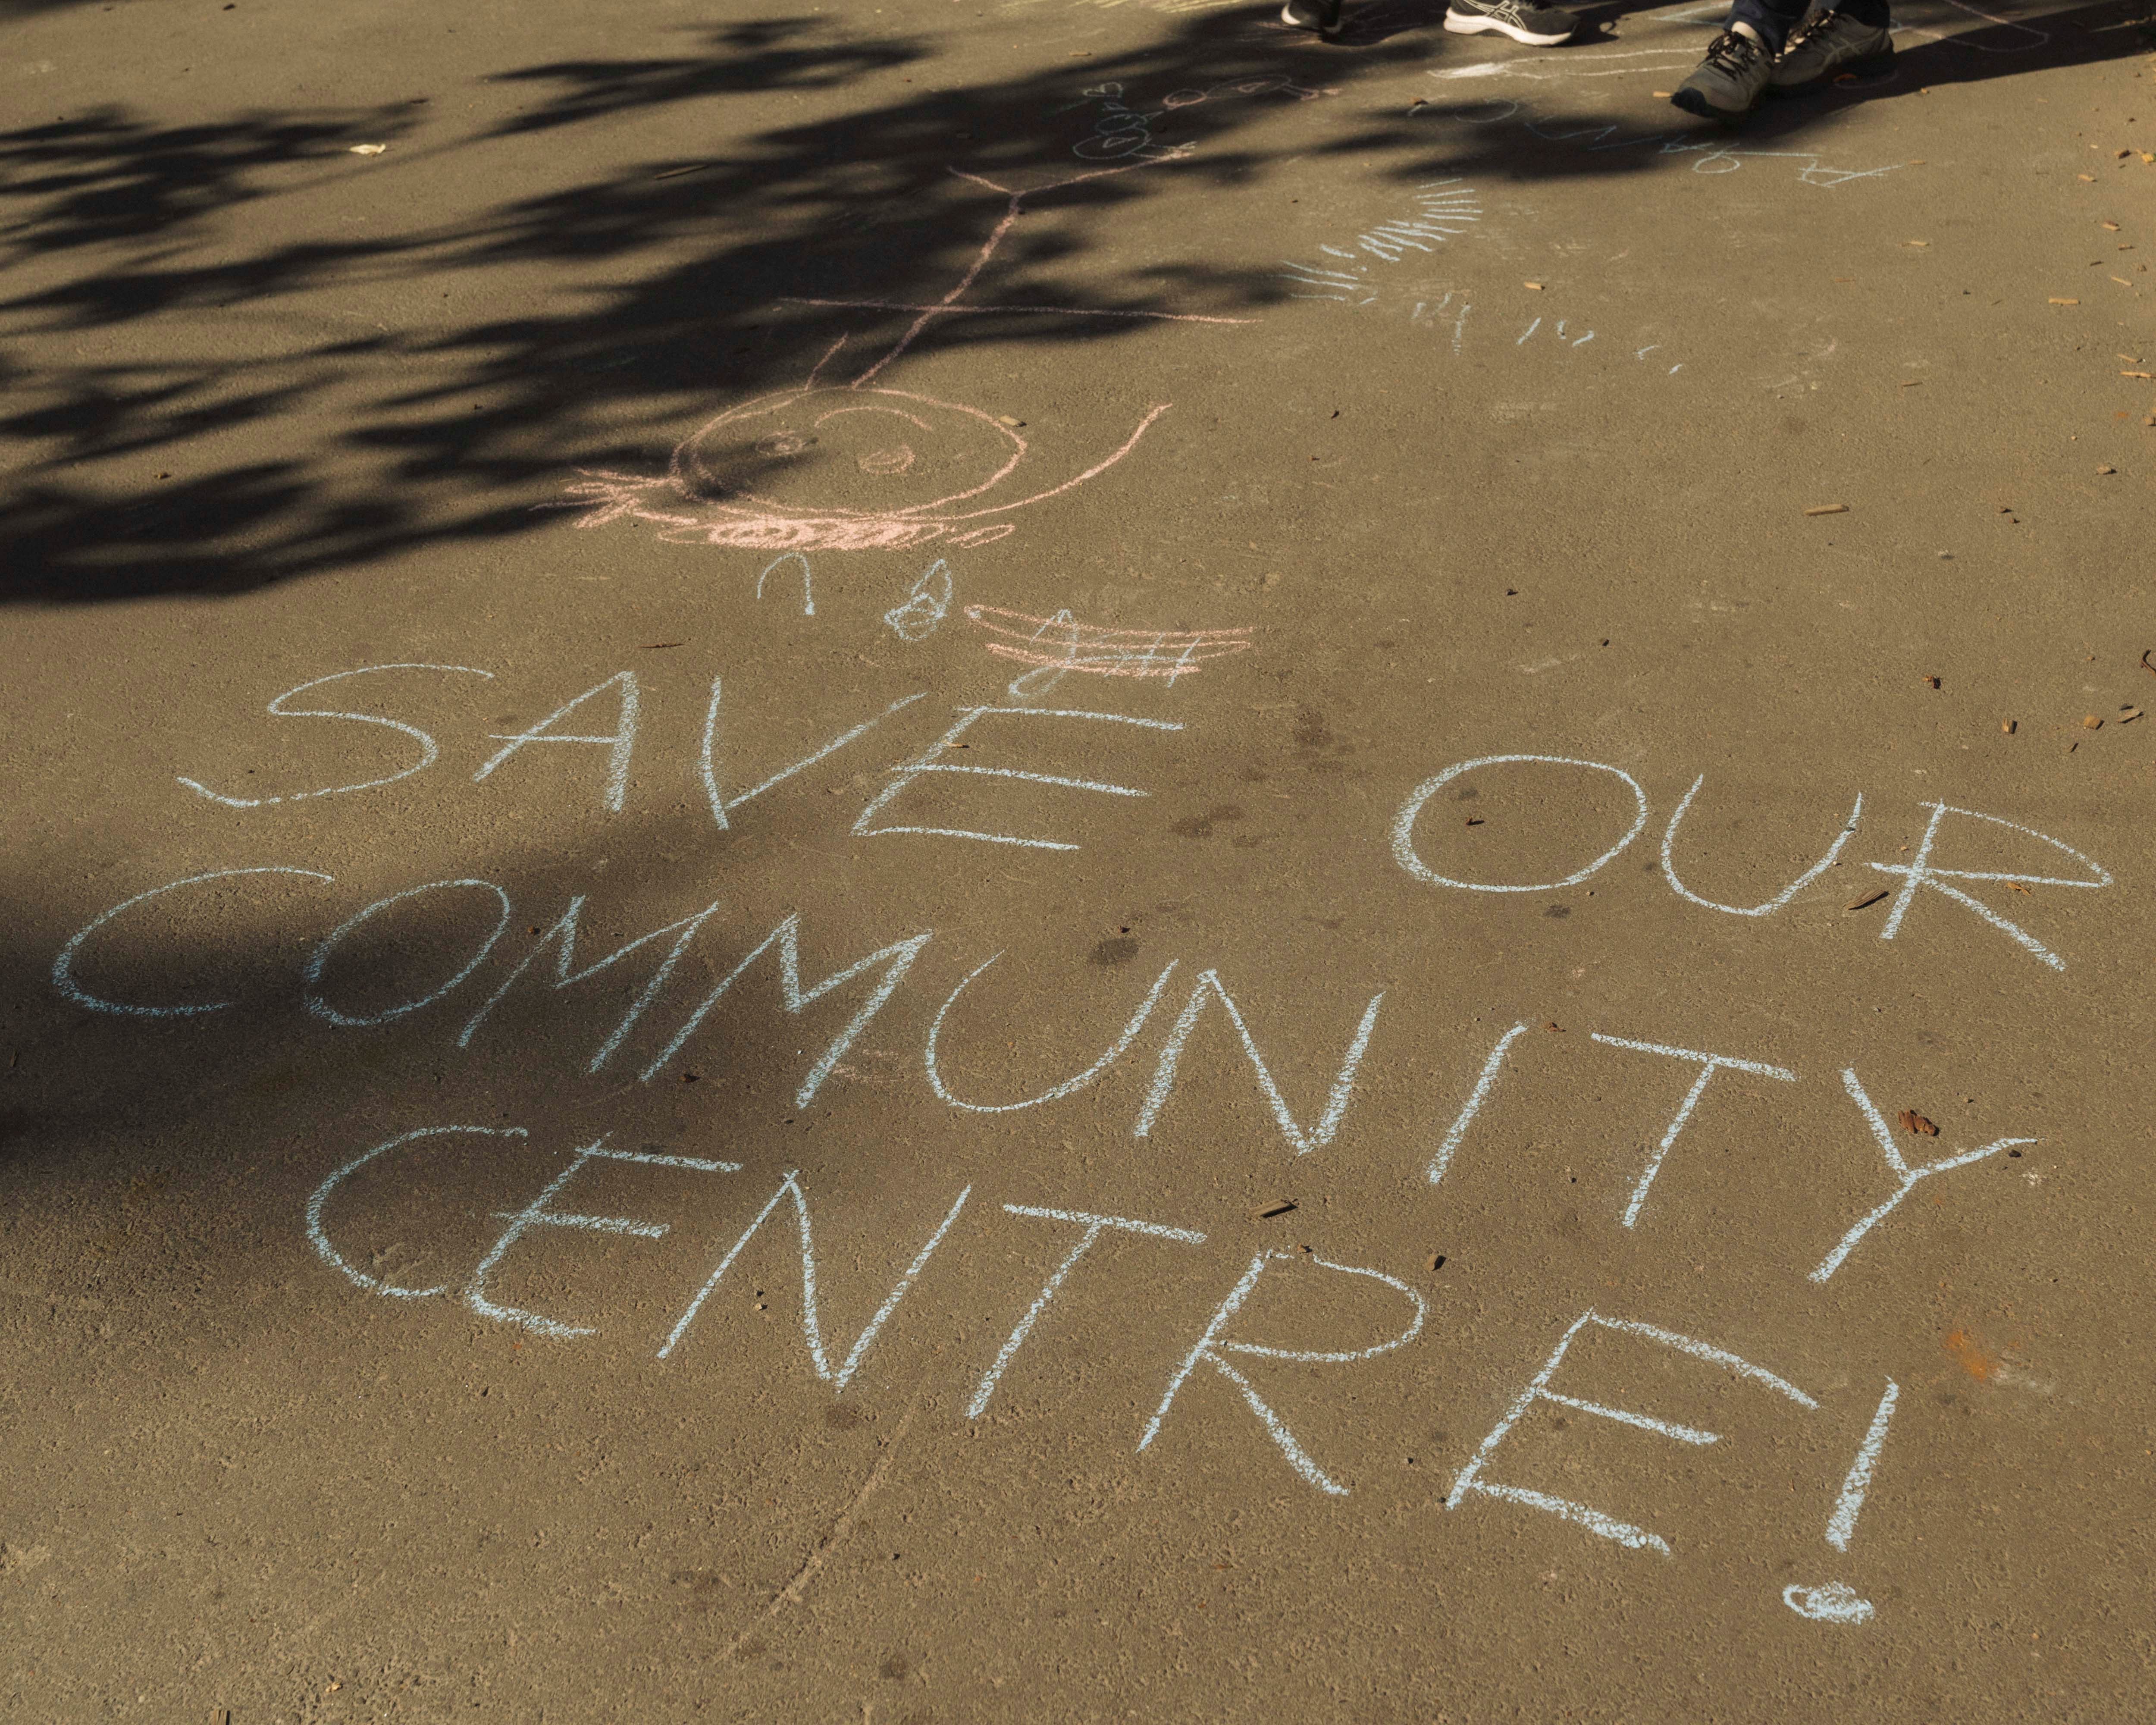 SAVE OUR
COMMUNITY
CENTRE!